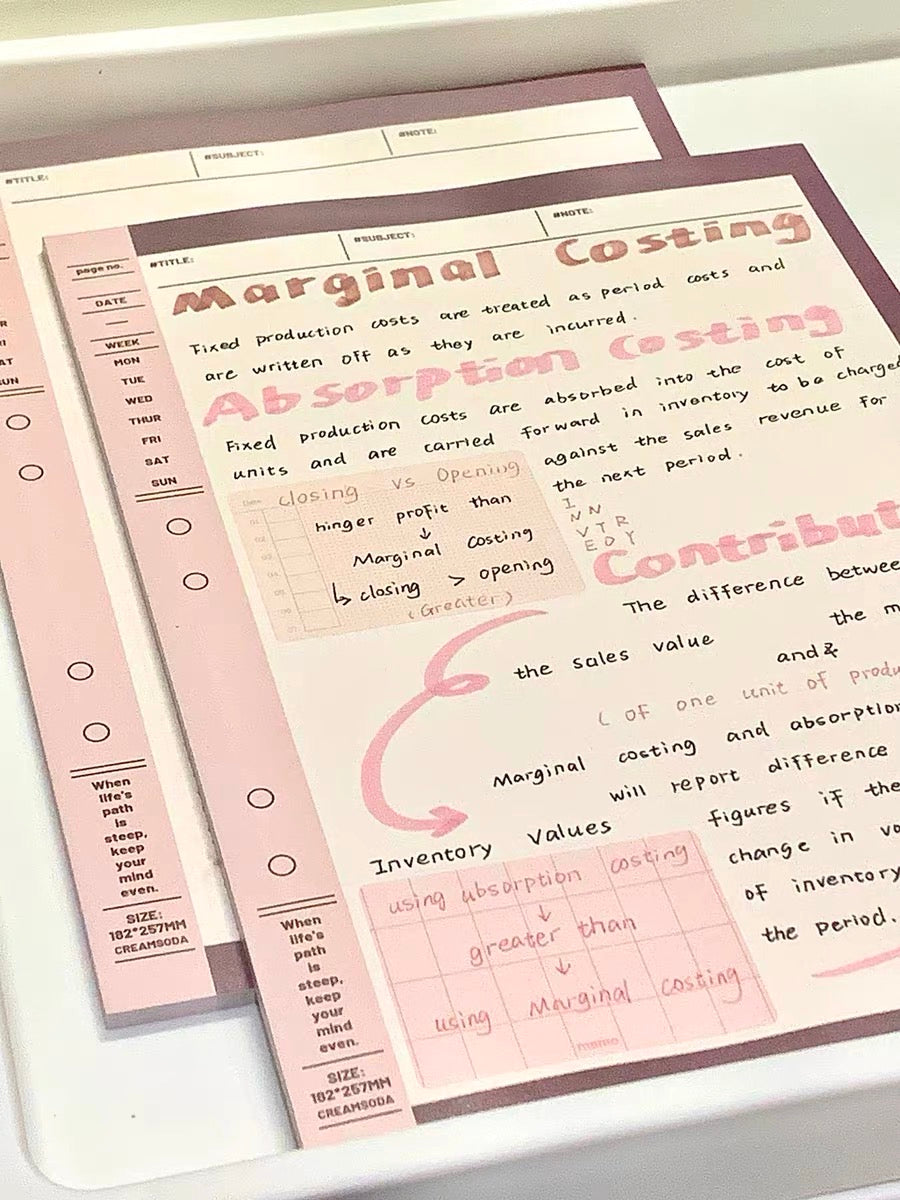 #TITLE:
#SUBJECT:
#NOTE:
UN
When
life's
path
is
steep,
keep
your
mind
even.
SIZE:
182*257MM
CREAMSODA
#TITLE:
#SUBJECT:
#NOTE:
page no.
DATE
WEEK
MON
TUE
WED
THUR
FRI
SAT
SUN
When
life's
path
is
steep,
keep
your
mind
even.
SIZE:
182*257MM
CREAMSODA
Marginal Costing
Fixed production costs are treated as period costs and
are written off as they are incurred.
Absorption Costing
Fixed production costs are absorbed into the cost of
units and are carried forward in inventory to be charged
against the sales revenue for
the next period.
closing vs Opening
hinger profit than
↓
Marginal costing
↳ closing > opening
(Greater)
I
N N
V T R
E O Y
Contribut
The difference betwee
the sales value
the m
and &
( of one unit of produ
Marginal costing and absorption
will report difference
figures if the
change in vo
of inventory
the period.
Inventory Values
using absorption costing
↓
greater than
↓
using Marginal costing
memo